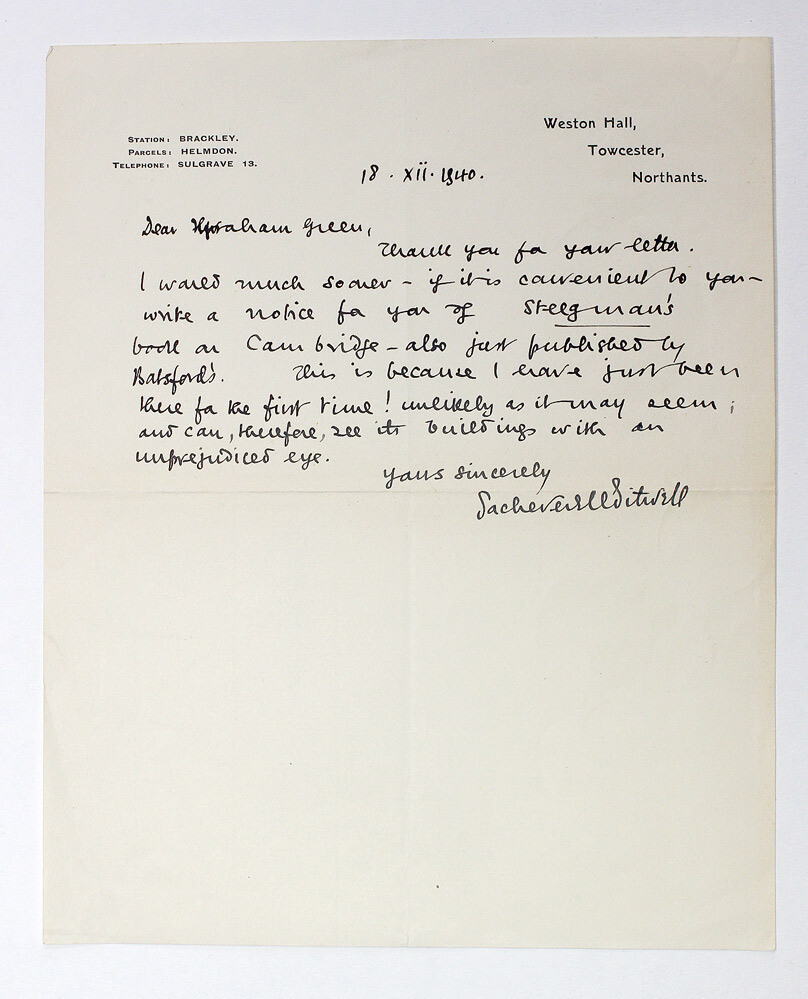 STATION: BRACKLEY.
PARCELS: HELMDON.
TELEPHONE: SULGRAVE 13.
Weston Hall,
Towcester,
Northants.
18 . XII . 1940.
Dear Graham Green,
Thank you for your letter.
I would much sooner – if it is convenient to you –
write a notice for you of Steegman's
book on Cambridge – also just published by
Batsford's. This is because I have just been
there for the first time! unlikely as it may seem;
and can, therefore, see its buildings with an
unprejudiced eye.
Yours sincerely
Sacheverell Sitwell